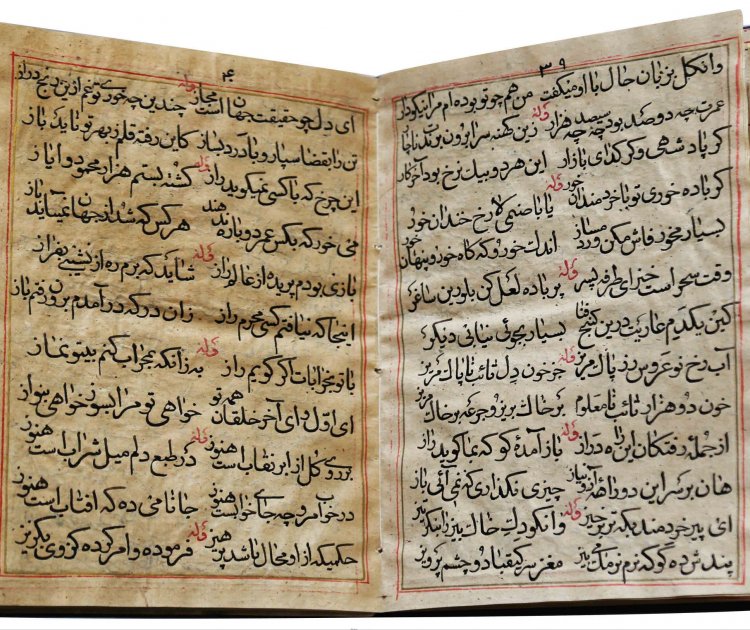 ۳۹
وانکل بزبان حال با او میکفت من هم چو تو بوده ام مرا نیکو دار
وله
عمرت چه دو صد بود چه سیصد چه هزار زین کهنه سرا برون برندت ناچار
کر پادشهی و کر کدای بازار این هر دو بیک نرخ بود آخر کار
وله
کر باده خوری تو با خردمندان خور یا با صنمی لاله رخ خندان خور
بسیار مخور فاش مکن ورد مساز اندک خور و که کاه خور و پنهان خور
وله
وقت سحر است خیز ای طرفه پسر پر باده لعل کن بلورین ساغر
کین یکدم عاریت درین کنج فنا بسیار بجوئی نیابی دیکر
وله
آب رخ نوعروس رز پاک مریز جز خون دل تائب ناپاک مریز
خون دو هزار تائب نامعلوم بر خاک بریز و جرعه بر خاک مریز
وله
از جمله رفتکان این راه دراز باز آمده کو که بما کوید راز
هان بر سر این دو راهه آز و نیاز چیزی نکذاری که نمی آئی باز
وله
ای پیر خردمند بکه تر برخیز وانکودک خاک بیز را بنکر تیز
پندش ده کو که نرم نرمک می بیز مغز سر کیقباد و چشم پرویز
۴
وله
ای دل چو حقیقت جهان است مجاز چندین چه خوری تو غم ازین رنج دراز
تن را بقضا سپار و با درد بساز کاین رفته قلم ز بهر تو ناید باز
وله
این چرخ که با کسی نمیکوید راز کشته بستم هزار محمود و ایاز
می خور که بکس عمر دوباره ندهند هر کس که شد از جهان نمیآید باز
وله
بازی بودم پریده از عالم راز شاید که برم ره از نشیبی بفراز
اینجا که نیافتم کسی محرم راز زان در که درآمدم برون رفتم باز
وله
با تو بخرابات اکر کویم راز به زانکه بمحراب کنم بیتو نماز
ای اول و ای آخر خلقان همه تو خواهی تو مرا بسوز خواهی
وله
بر روی کل از ابر نقاب است هنوز در طبع دلم میل شراب است هنوز
در خواب مرو چه جای خوابست هنوز جانا می ده که افتاب است هنوز
وله
حکمیکه از او محال باشد پرهیز فرموده و امر کرده کز وی بکریز